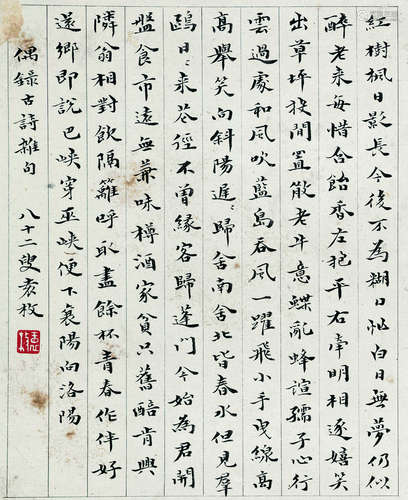 紅樹楓日影長今後不為糊口忙白日無夢仍似
醉老来每惜含飴香左抱平右牽明相逐嬉笑
出草坪投閒置散老意蝶亂蜂諠孺子心行
雲過處和風吹藍島春風一躍飛小手曳線高
高舉笑向斜陽遲〻歸舍南舍北皆春水但見群
鷗日〻来花徑不曾緣客歸蓬門今始為君開
盤食市遠無兼味樽酒家貧只舊醅肯與
隣翁相對飲隔籬呼取盡餘杯青春作伴好
還鄉即說巴峽穿巫峽便下襄陽向洛陽
偶錄古詩雜句 八十二叟袁枚
袁枚